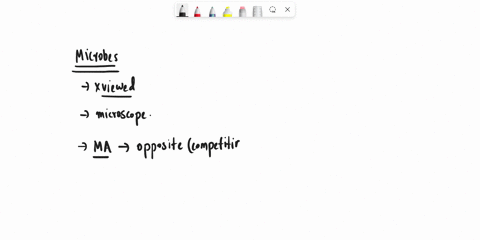 Microbes
→ x viewed
→ microscope.
→ MA → opposite (competitir